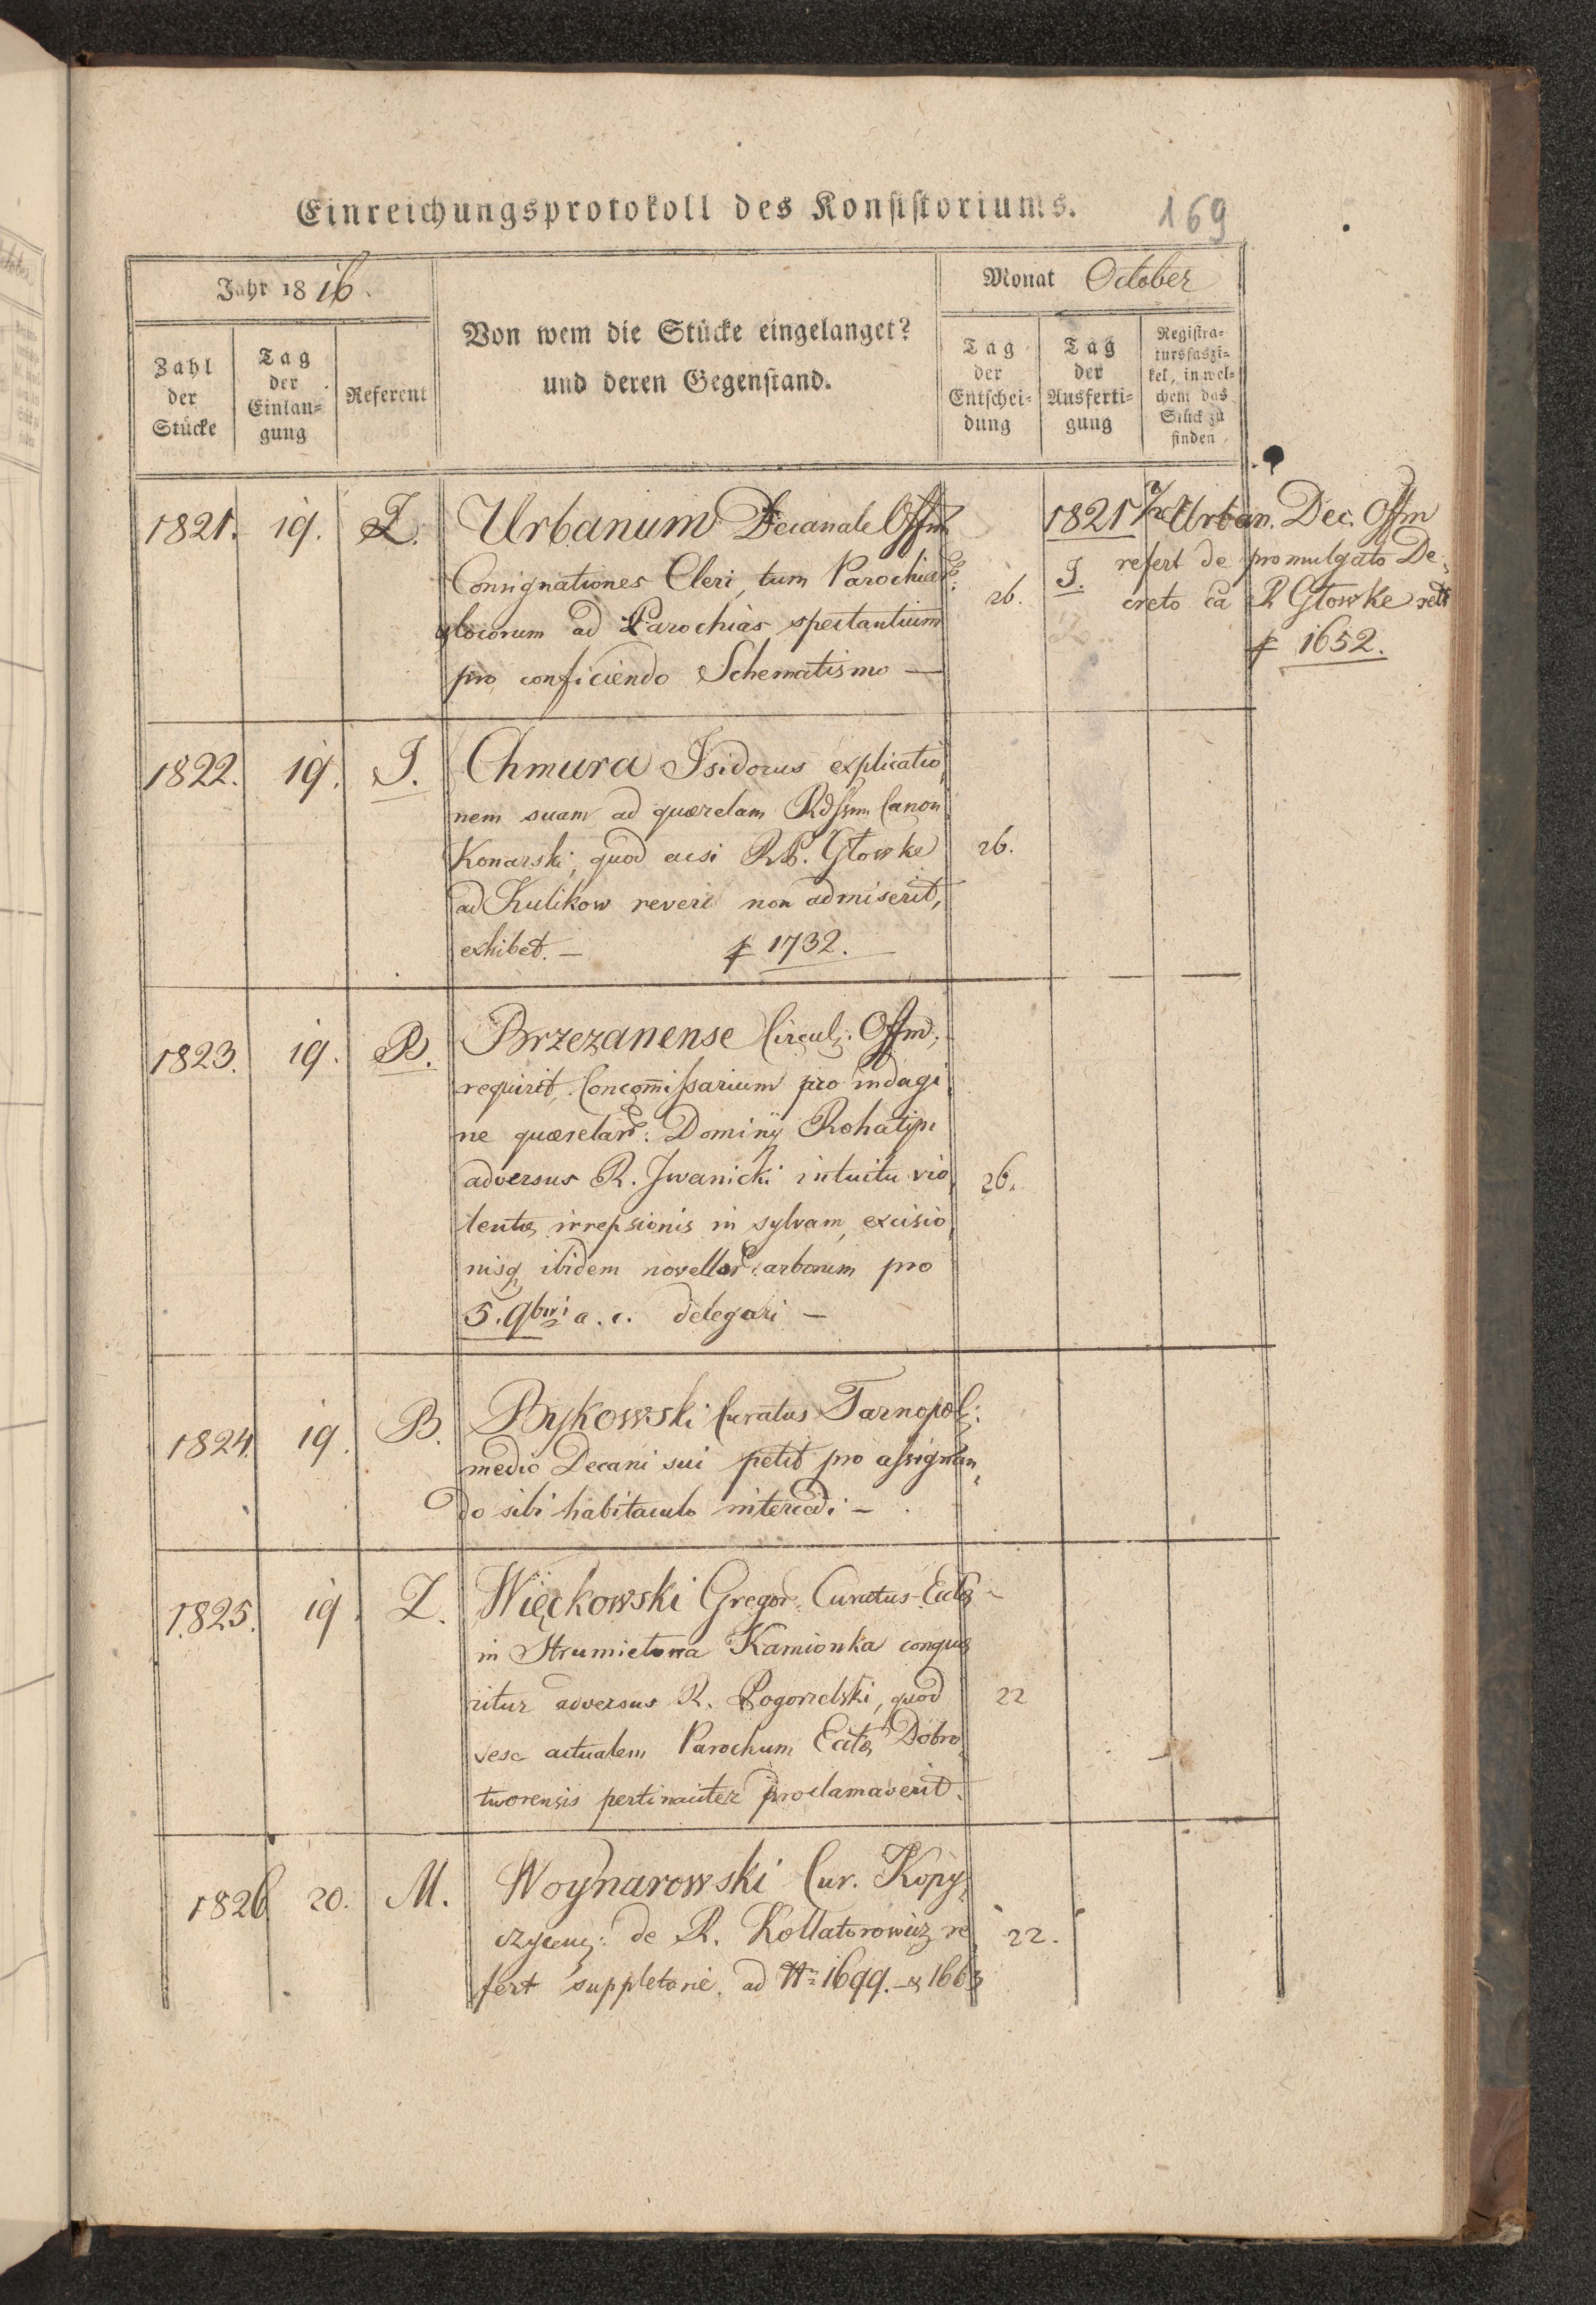 Einreichungsprotokoll des Konsistoriums.
169
Jahr 1816.
Von wem die Stücke eingelanget?
und deren Gegenstand.
Monat October
Zahl
der
Stücke
Tag
der
Einlan=
gung
Referent
Tag
der
Entschei=
dung
Tag
der
Ausferti=
gung
Registra=
tursfaszi=
kel, in wel=
chem das
Stück zu
finden
1821. 19. Z. Urbanum Decanale Offm
Consignationes Cleri, tum Parochiar:
glocorum ad Parochias spectantium
pro conficiendo Schematismo —
26.
1821 Urban. Dec. Offm
J. refert de promulgato De,
creto ca R Głowke
1652.
1822. 19. J. Chmura Isidorus explicatio,
nem suam ad quærelam Rdssmi Canon
Konarski, quod acsi R.P. Głowke
ad Kulikow reveri non admiserit,
exhibet. — 1732.
26.
1823. 19. B. Brzezanense Circul: Offm:
requirit, Concomissarium pro indagi,
ne quærelar: Dominij Rohatyn:
adversus R. Iwanicki intuitu vio,
lentæ irrepsionis in sylvam, excisio,
nisq ibidem novellar: arborum pro
5. 9bris a. c. delegari —
26.
1824. 19. B. Bykowski Curatus Tarnopol:
medio Decani sui petit pro assignan,
do sibi habitaculo intercedi —
1825. 19. Z. Więckowski Gregor: Curatus Eccłæ
in Strumiłowa Kamionka conquæ
ritur adversus R. Pogorzelski, quod
sese actualem Parochum Eccłæ Dobro,
tworensis pertinaciter proclamaverit.
22
1826 20. M. Woynarowski Cur. Kopy,
czyeni: de R. Kollatorowicz re,
fert suppletorie. ad No 1699. & 1663
22.